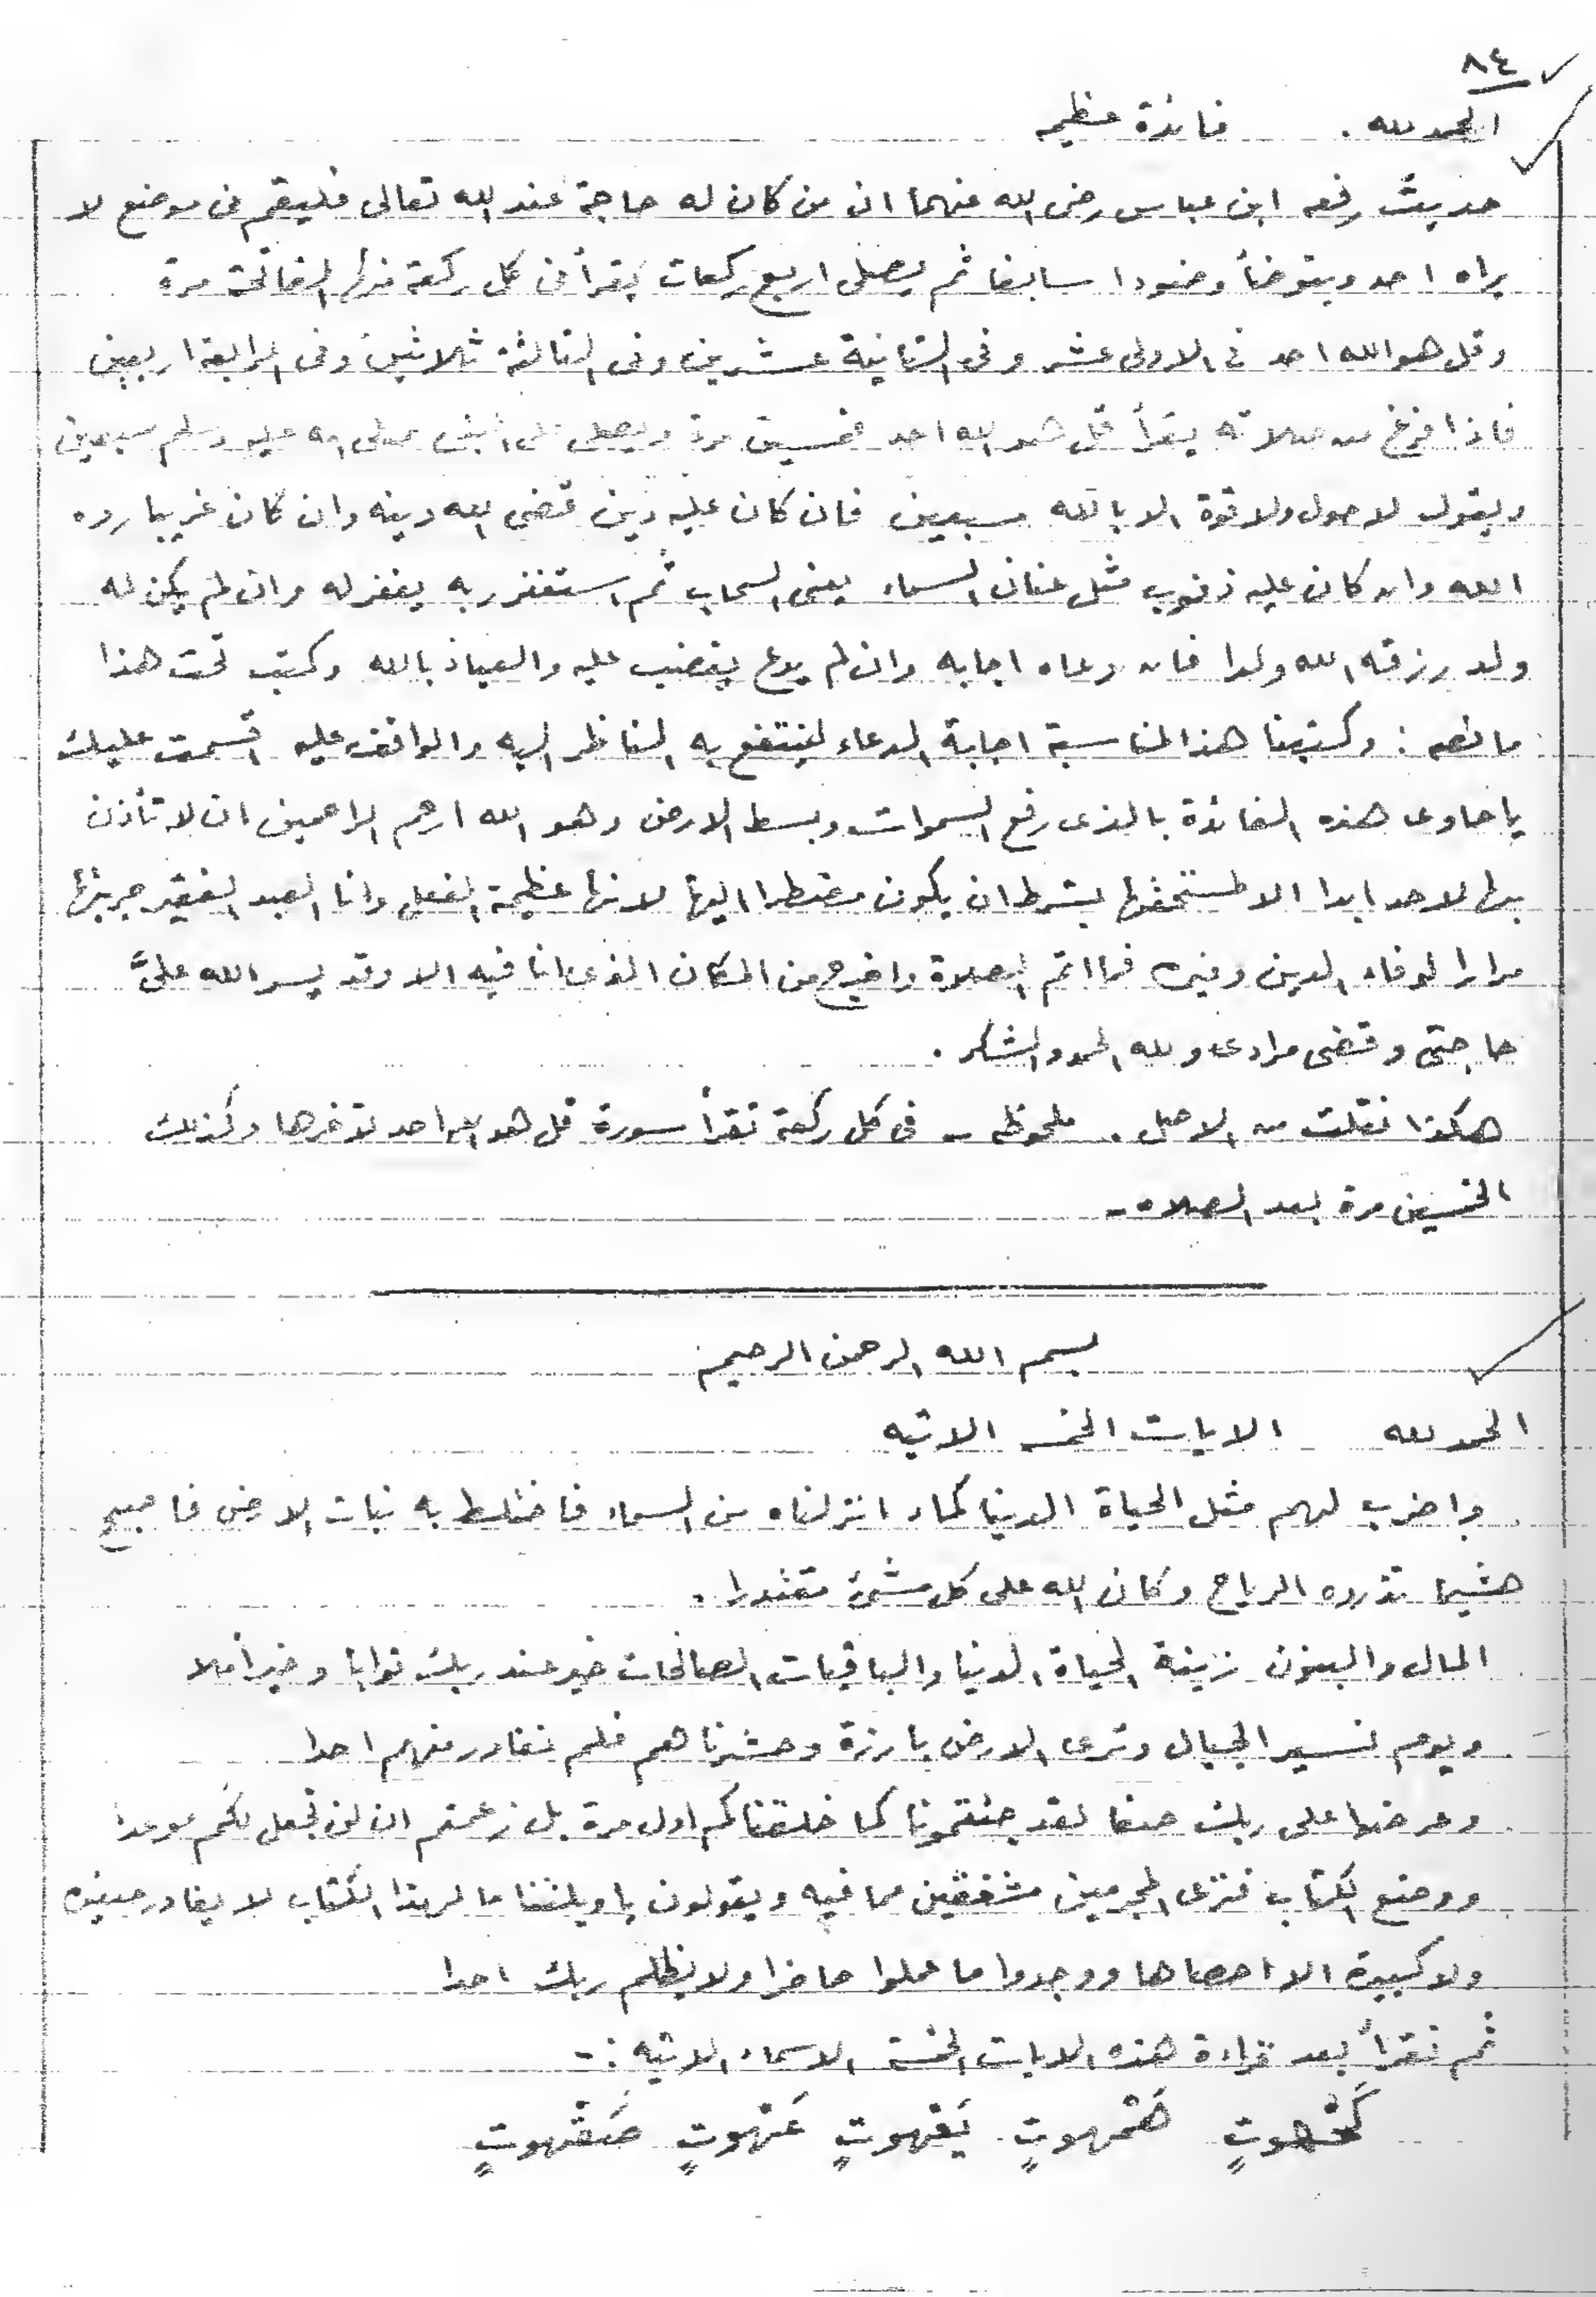 ٨٤
الحمد لله . فائدة عظيمه
حديث رفعه ابن عباس رضى الله عنهما ان من كان له حاجة عند الله تعالى فليقم فى موضع لا
يراه احد ويتوضأ وضوءا سابغا ثم يصلى اربع ركعات يقرأ فى كل ركعة منها الفاتحة مرة
وقل هو الله احد فى الاولى عشر وفى الثانية عشرين وفى الثالثة ثلاثين وفى الرابعة اربعين
فاذا فرغ من صلاته يقرأ قل هو الله احد خمسين مرة ويصلى على النبى صلى الله عليه وسلم سبعين
ويقول لا حول ولا قوة الا بالله سبعين فان كان عليه دين قضى الله دينه وان كان غريبا رده
الله وان كان عليه ذنوب مثل عنان السماء يعنى السحاب ثم استغفر ربه يغفر له وان لم يكن له
ولد رزقه الله ولدا فان دعاه اجابه وان لم يدع يغضب عليه والعياذ بالله وكتب تحت هذا
ما نصه : وكتبنا هذا لمناسبة اجابة الدعاء لينتفع به الناظر اليه والواقف عليه اقسمت عليك
يا حاوى هذه الفائدة بالذى رفع السموات وبسط الارض وهو الله ارحم الراحمين ان لا تأذن
بها لاحد ابدا الا لمستحقها بشرط ان يكون مضطرا اليها لانها عظيمة الفعل وانا العبد الفقير جربتها
مرارا لوفاء الدين وغيره فما اتم الصلاة واخرج من المكان الذى انا فيه الا وقد يسر الله علىَّ
حاجتى وقضى مرادى ولله الحمد والشكر .
هكذا نقلت من الاصل . ملحوظه - فى كل ركعة تقرأ سورة قل هو الله احد لآخرها وكذلك
الخمسين مرة بعد الصلاه -
بسم الله الرحمن الرحيم
الحمد لله الايات الخمس الاتيه
واضرب لهم مثل الحياة الدنيا كماء انزلناه من السماء فاختلط به نبات الارض فاصبح
هشيما تذروه الرياح وكان الله على كل شئ مقتدرا .
المال والبنون زينة الحياة الدنيا والباقيات الصالحات خير عند ربك ثوابا وخير أملا
ويوم نسير الجبال وترى الارض بارزة وحشرناهم فلم نغادر منهم احدا
وعرضوا على ربك صفا لقد جئتمونا كما خلقناكم اول مرة بل زعمتم ان لن نجعل لكم موعدا
ووضع الكتاب فترى المجرمين مشفقين مما فيه ويقولون يا ويلتنا ما لهذا الكتاب لا يغادر صغيره
ولا كبيرة الا احصاها ووجدوا ما عملوا حاضرا ولا يظلم ربك احدا
ثم تقرأ بعد قراءة هذه الايات الخمسة الاسماء الاتيه : -
كَهْهوتٍ هَمْهوتٍ يَعْهوتٍ عَهْهوتٍ صَعْهوتٍ